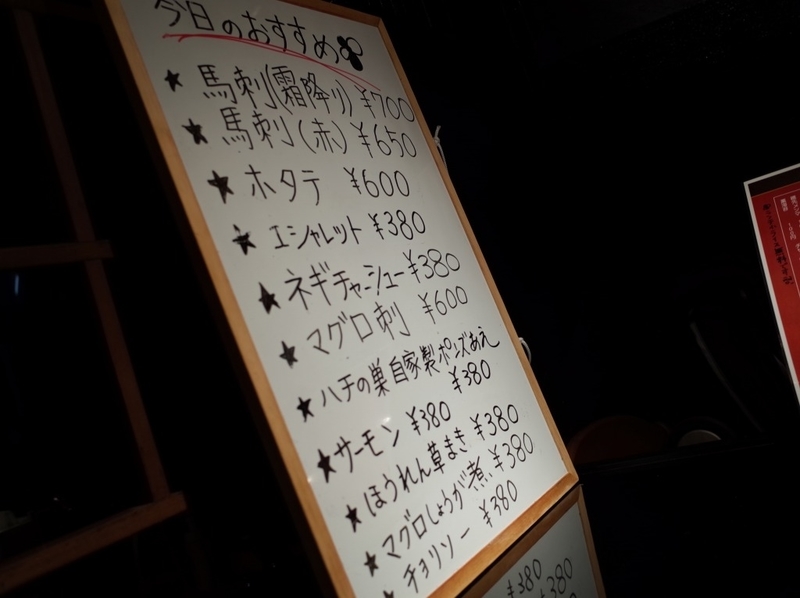 今日のおすすめ
★ 馬刺(霜降り) ¥700
★ 馬刺(赤) ¥650
★ ホタテ ¥600
★ エシャレット ¥380
★ ネギチャーシュー ¥380
★ マグロ刺 ¥600
★ ハチの巣自家製ポンズあえ
¥380
★ サーモン ¥380
★ ほうれん草まき ¥380
★ マグロしょうが煮 ¥380
★ チョリソー ¥380
¥380
¥380